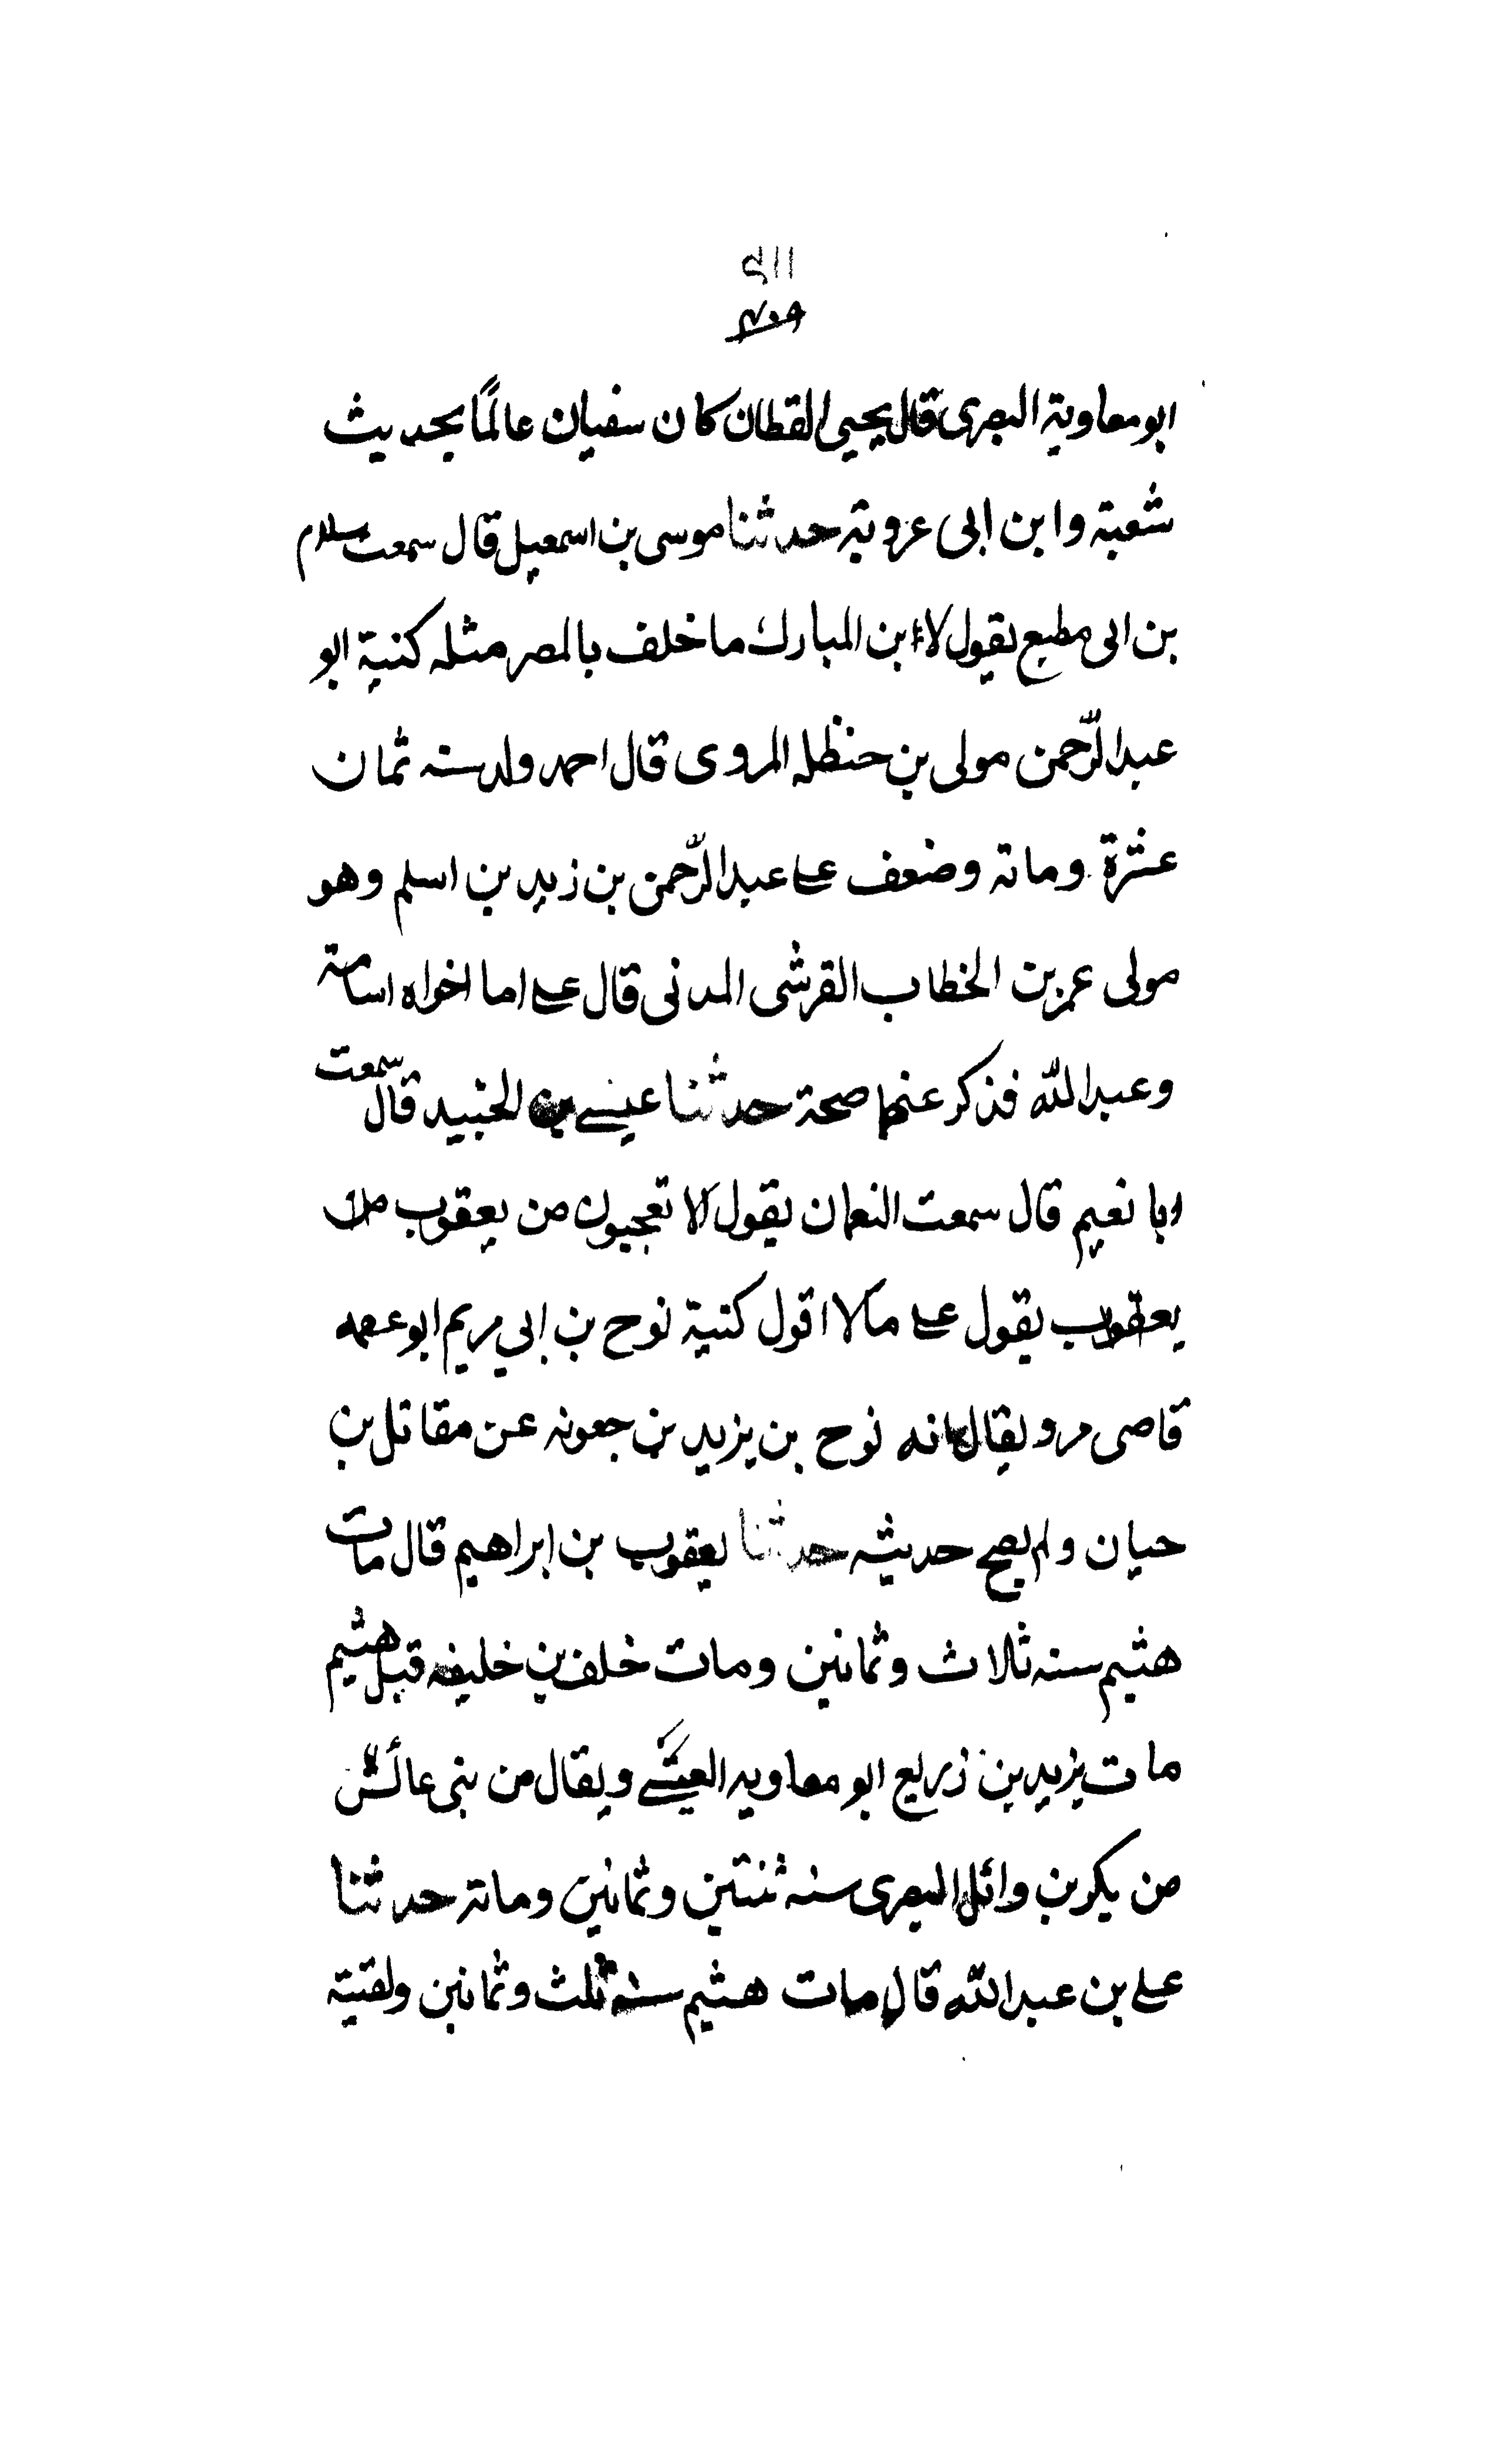 ابو معاوية البصرى قال يحيى القطان كان سفيان عالمًا بحديث
شعبة وابن ابى عروبة حدثنا موسى بن اسمعيل قال سمعت سلام
بن ابى مطيع يقول لابن المبارك ما خلف بالمصر مثله كنية ابو
عبد الرّحمن مولى بن حنظله المروى قال احمد ولد سنه ثمان
عشرة ومائة وضعف على عبد الرّحمن بن زيد بن اسلم وهو
مولى عمر بن الخطاب القرشى المدنى قال على اما اخواه اسامة
وعبد الله فذكر عنهما صحة حدثنا عيسے بن الجنيد قال سمعت
ابا نعيم قال سمعت النعمان يقول الا تعجبون من يعقوب
يعقوب يقول على ما لا اقول كنية نوح بن ابي مريم ابو عصمه
قاضى مرو يقال انه نوح بن يزيد بن جعونه عن مقاتل بن
حيان ولم يصح حديثه حدثنا يعقوب بن ابراهيم قال مات
هشيم سنه ثلاث وثمانين ومات خلف بن خليفه قبل هشيم
مات يزيد بن زريع ابو معاويه العيشے ويقال من بنى عائش
من بكر بن وائل البصرى سنه ثنتين وثمانين ومائة حدثنا
على بن عبد الله قال مات هشيم سنة ثلث وثمانين ولقيته